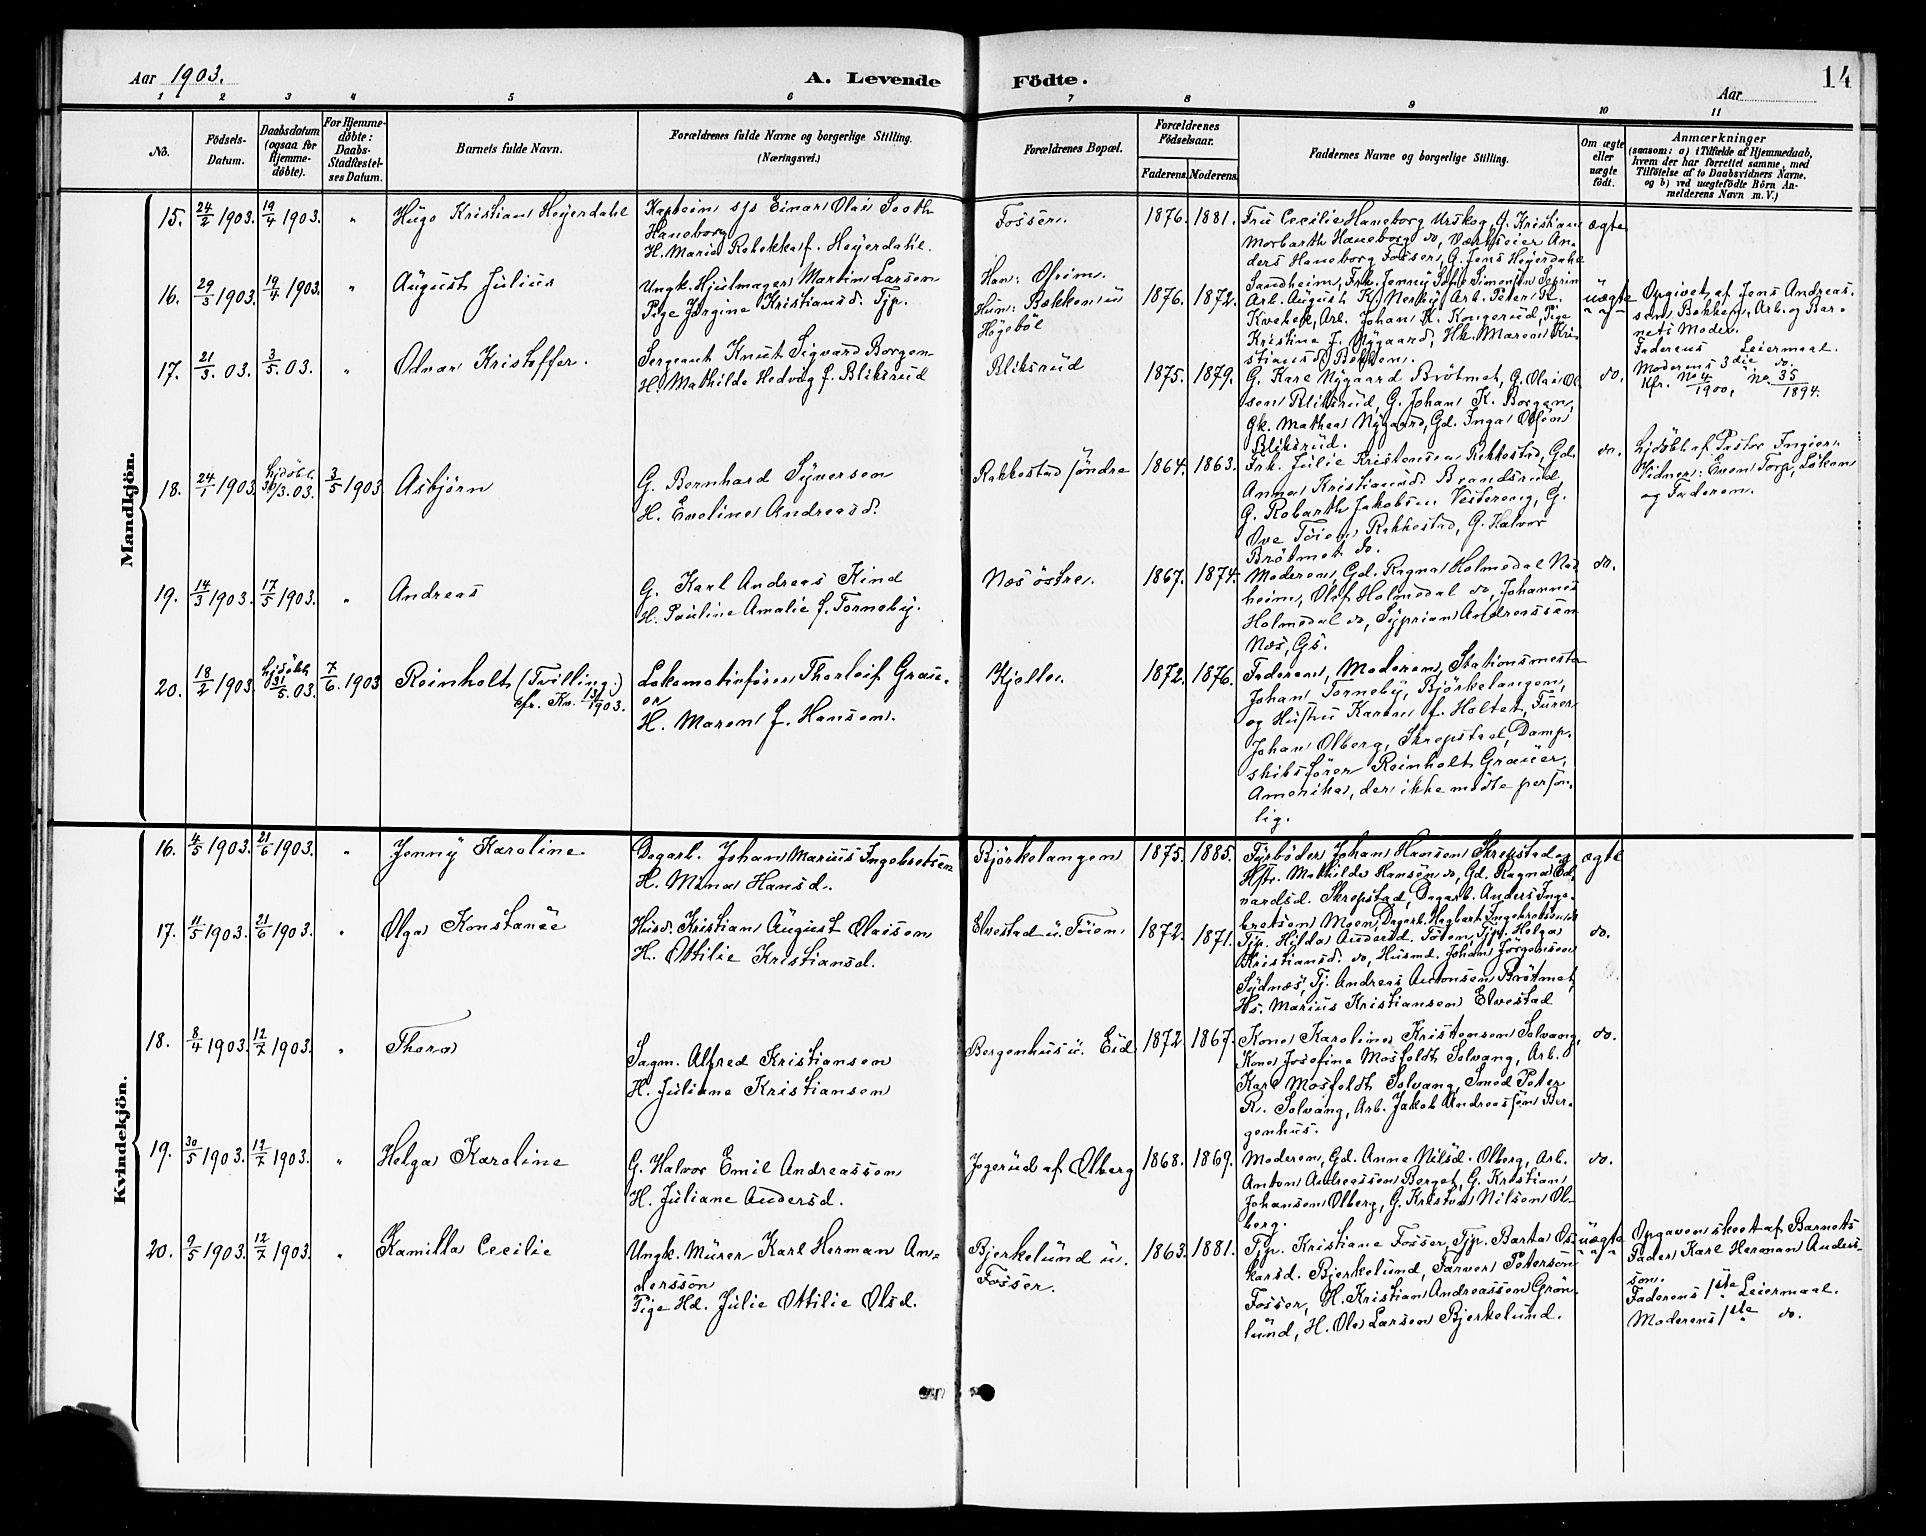 Aar 1903.
A. Levende Födte.
Aar
14
1 2 3 4 5 6 7 8 9 10 11
No.
Födsels-Datum.
Daabsdatum (ogsaa for Hjemme-döbte).
For Hjemme-döbte: Daabs-Stadfæstel-ses Datum.
Barnets fulde Navn.
Forældrenes fulde Navne og borgerlige Stilling. (Næringsvei.)
Forældrenes Bopæl.
Forældrenes Födselsaar.
Faderens. Moderens.
Faddernes Navne og borgerlige Stilling.
Om ægte eller uægte födt.
Anmærkninger
(saasom: a) i Tilfælde af Hjemmedaab, hvem der har forrettet samme, med Tilföielse af to Daabsvidners Navne, og b) ved uægtefödte Börn An-melderens Navn m. V.)
Mandkjön.
15. 24/2 1903. 19/4 1903. " Hugo Kristian Heyerdahl
Kaptein Einar Olai Haneborg
H. Marie Rebekka f. Heyerdahl.
Fosser. 1876. 1881.
Fru Cecilie Haneborg Urskog, G. Kristian
Morbarth Haneborg do, Værtseier An-
ders Haneborg Fosser, G. Jens Heyerdahl
Sandheim, Frk. Jenny Simonsen
ægte
16. 29/3 1903. 19/4 1903. " August Julius
Ungk. Hjulmager Martin Larsen
Pige Jørgine Kristiansd. Tjp.
Han: Ofrim.
Hun: Bakken u
Högeböl
1876. 1872.
Arb. August K. Nerby, Arb. Peter K.
Kvebek, Arb. Johan K. Kongerud, Pige
Kristine J. Nygaard, Hk. Maren Kri-
stiansd. Bakken.
uægte
Opgivet af Jens Andreas-
sen Bakken, Arb. og Bar-
nets Moder.
Faderens Leiermaal.
Moderens 3die do.
Kfr. No 4/1900, No. 35/1894.
17. 21/3. 03. 3/5. 03. " Odvar Kristoffer.
Sergeant Knut Sigvard Borgen
H. Mathilde Hedvig f. Bliksrud
Bliksrud 1875. 1879.
G. Karl Nygaard Brötmet, G. Olai Ol-
sen Bliksrud, G. Johan K. Borgen,
Gk. Mathea Nygaard, Gd. Inga Olsen
Bliksrud.
do.
18. 24/1 1903. hjdöbt 30/3. 03. 3/5 1903 Asbjörn
G. Bernhard Syversen
H. Eveline Andreasd.
Rakkestad söndre 1864. 1863.
Frk. Julie Kristensen Rakkestad, Gd.
Anna Kristiansd. Brandsrud,
G. Robarth Jakobsen Vestereng, G.
Ove Töien Rakkestad, G. Halvor
Brötmet do.
do.
Hjdöbt af Pastor Ingier.
Vidner: Even Torp, Löken
og Faderen.
19. 14/3 1903. 17/5 1903. " Andreas
G. Karl Andreas Kind
H. Pauline Amalie f. Torneby.
Næs östre. 1867. 1874.
Moderen, Gd. Ragna Holmedal Næs-
heim, Olaf Holmedal do, Johannes
Holmedal do, Syprian Andreassen
Næs, Gs.
do.
20. 18/2 1903. hjdöbt 31/5. 03. 7/6. 1903 Reinholt (Tvilling.)
cfr. Kv. 13/1903.
Lokomotivförer Thorleif Grau-
er
H. Maren f. Hansen.
Kjelle. 1872. 1876.
Faderen, Moderen, Stationsmester
Johan Torneby, Björkelangen,
og Hustru Karen f. Holtet, Furer
Johan Olberg, Skrepstad, Damp-
skibsförer Reinholt Grauer,
Amerika, der ikke mödte person-
lig.
Kvindekjön.
16. 4/5 1903. 21/6 1903. " Jenny Karoline.
Dagarb. Johan Marius Ingebretsen
H. Mina Hansd.
Björkelangen 1875. 1885.
Fyrböder Johan Hansen Skrepstad og
Hstr. Mathilde Hansen do, Gd. Ragna Ed-
vardsd. Skrepstad, Dagarb. Anders Inge-
bretsen Moen, Dagarb. Hagbart Ingebretsen do
ægte
17. 11/5 1903. 21/6 1903. " Olga Konstance
Husd. Kristian August Olaisen
H. Ottilie Kristiansd.
Elvestad u. Töien 1872. 1871.
Tjp. Hilda Andersd. Töien, Tjp. Helga
Kristiansd. do, Husmd. Johan Jörgensen
Sydnæs, Tj. Andreas Antonsen Brötmet,
Hs. Marius Kristiansen Elvestad
do.
18. 8/4 1903. 12/7 1903. " Thora
Sagm. Alfred Kristiansen
H. Juliane Kristiansen
Bergenhus u. Eid 1872 1867.
Kone Karoline Kristensen Solvang,
Kone Josefine Mosfeldt Solvang, Arb.
Karl Mosfeldt Solvang, Smed Peter
R. Solvang, Arb. Jakob Andreassen Ber-
genhus.
do.
19. 30/5 1903. 12/7 1903. " Helga Karoline
G. Halvor Emil Andreassen
H. Juliane Andersd.
Jogerud af Olberg 1868. 1869.
Moderen, Gd. Anne Nilsd. Olberg, Arb.
Anton Andreassen Berget, G. Kristian
Johansen Olberg, G. Kristen Nilsen Ol-
berg.
do.
20. 9/5 1903. 12/7 1903. " Kamilla Cecilie
Ungk. Murer Karl Herman An-
dersson
Pige Hd. Julie Ottilie Olsd.
Bjerkelund u.
Fosser. 1863. 1881.
Tjp. Kristiane Fosser, Tjp. Barta Os-
karsd. Bjerkelund, Farver Petersen
Fosser, H. Kristian Andreassen Grön-
lund, H. Ole Larsen Bjerkelund.
uægte
Opgaven skeet af Barnets
Fader Karl Herman Anders-
son.
Faderens 1ste Leiermaal.
Moderens 1ste do.